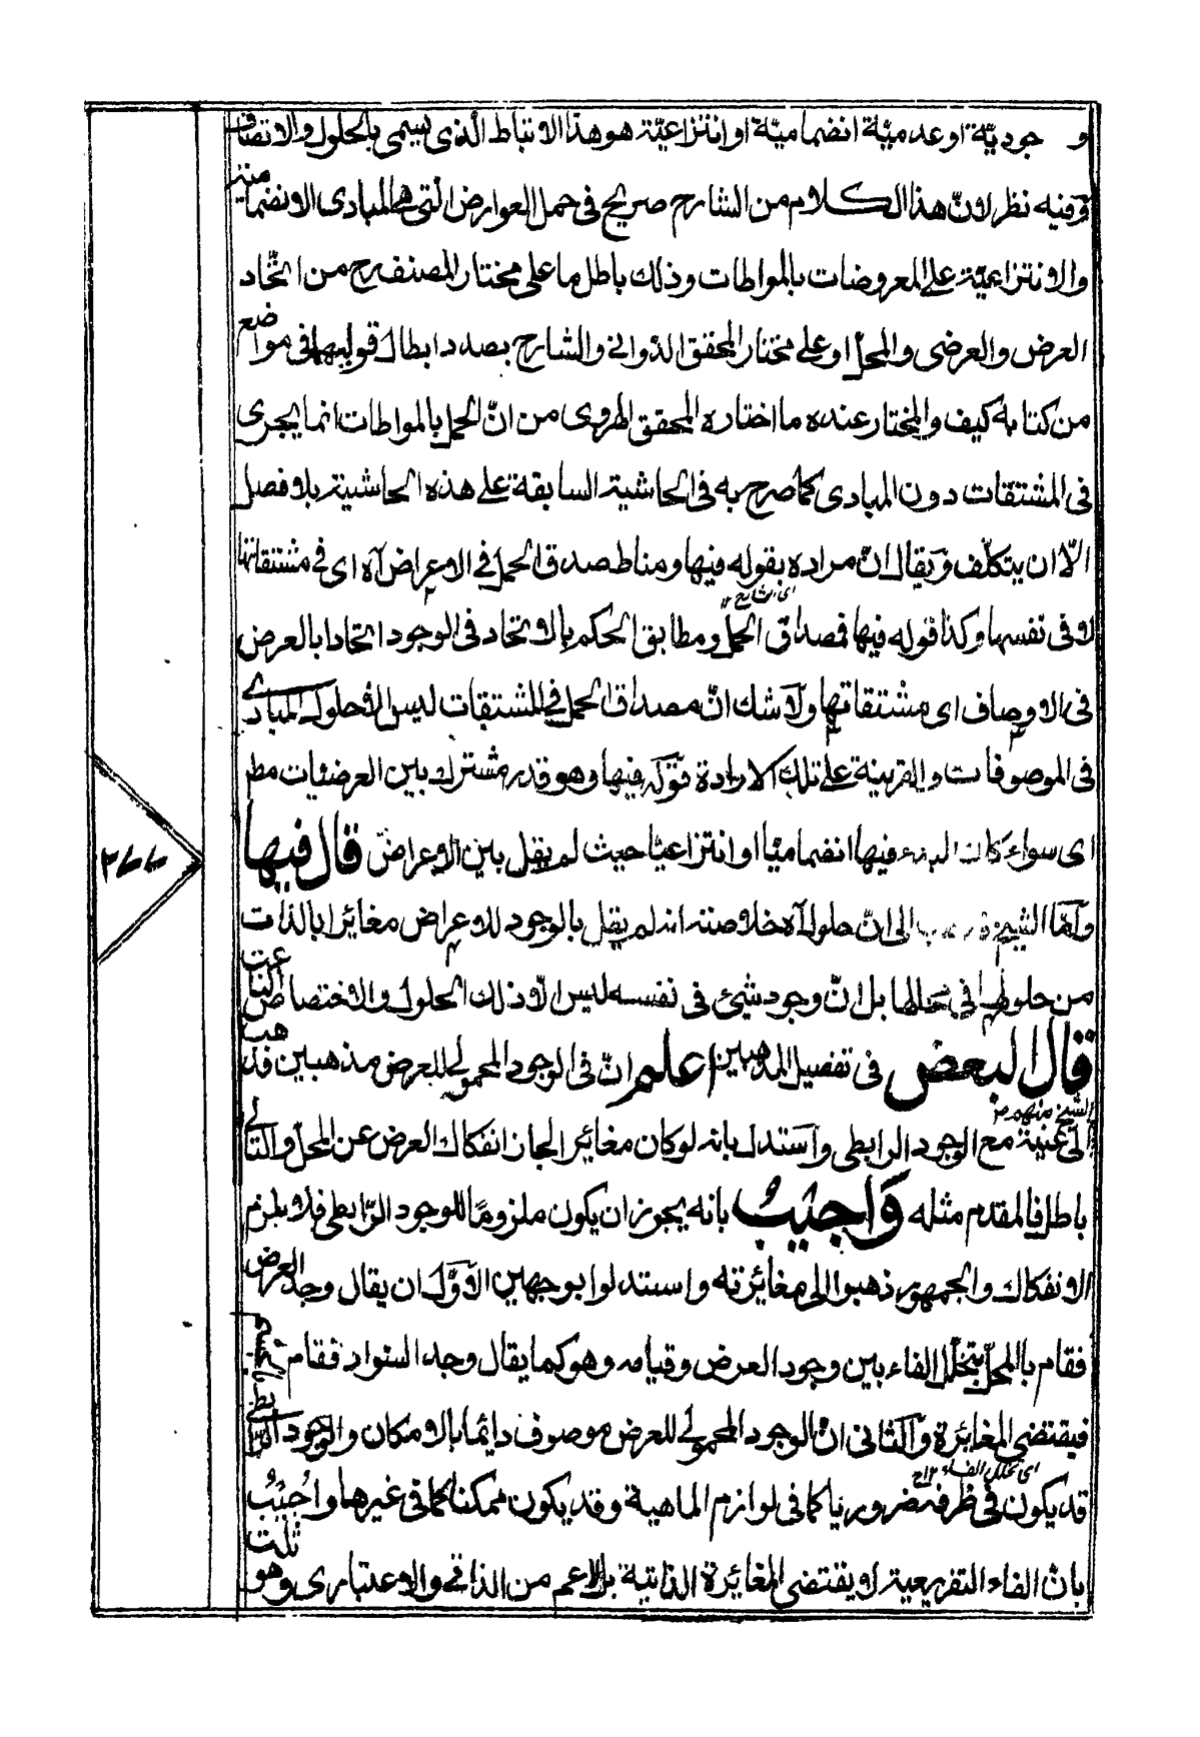 و جوديّة او عدميّة انضماميّة او انتزاعيّة هو هذا الارتباط الّذى يسمى بالحلول والاتصاف
وفيه نظر لانّ هذا الكلام من الشارح صريح فى حمل العوارض الّتى هى المبادى الانضمامية
والانتزاعيّة على المعروضات بالمواطات وذلك باطل ما على مختار المصنف رح من اتّحاد
العرض والعرضى والمحلّ او على مختار المحقق الدّوانى والشارح بصدد ابطال قوليهما فى مواضع
من كتابه كيف والمختار عنده ما اختاره المحقق الهروى من انّ الحمل بالمواطات انما يجرى
فى المشتقات دون المبادى كما صرح به فى الحاشية السابقة على هذه الحاشية بلا فصل
الّا ان يتكلّف ويقال انّ مراده بقوله فيها ومناط صدق الحمل فى الاعراض آه اى فى مشتقاتها
اى الشارح ١٢
لا فى نفسها وكذا قوله فيها فمصداق الحمل ومطابق الحكم بالاتحاد فى الوجود اتحادا بالعرض
فى الاوصاف اى مشتقاتها ولا شك انّ مصداق الحمل فى المشتقات ليس الّا حلول المبادى
فى الموصوفات والقرينة على تلك الارادة قوله فيها وهو قدر مشترك بين العرضيات مطر
اى سواء كان المبدء فيها انضماميّا او انتزاعيّا حيث لم يقل بين الاعراض قال فيها
وامّا الشيخ الى انّ حلول آه خلاصته انه لم يقل بالوجود للاعراض مغائرا بالذات
من حلولها فى محالها بل انّ وجود شيئ فى نفسه ليس الّا ذلك الحلول والاختصاص الناعت
قال البعض فى تفصيل المذهبين اعلم انّ فى الوجود المحمولى للعرض مذهبين فذهب
الشيخ منهم
الى عينية مع الوجود الرابطى واستدل بانه لو كان مغائرا لجاز انفكاك العرض عن المحلّ والتالى
باطل فالمقدم مثله واجيب بانه يجوز ان يكون ملزومًا للوجود الرّابطى فلا يلزم
الانفكاك والجمهور ذهبوا الى مغائرته واستدلوا بوجهين الاوّل ان يقال وجد العرض
فقام بالمحلّ بتخلّل الفاء بين وجود العرض وقيامه وهو كما يقال وجد السواد فقام بالجسم
فيقتضى المغائرة والثانى انّ الوجود المحمولى للعرض موصوف دائما بالامكان والوجود الرابطى
اى تخلل الفاء ١٢ ح
قد يكون فى ظرفه ضروريا كما فى لوازم الماهية وقد يكون ممكنا كما فى غيرها واجيب
بان الفاء التفريعية لا يقتضى المغائرة الذاتية بل الاعم من الذاتى والاعتبارى وهو ثلت